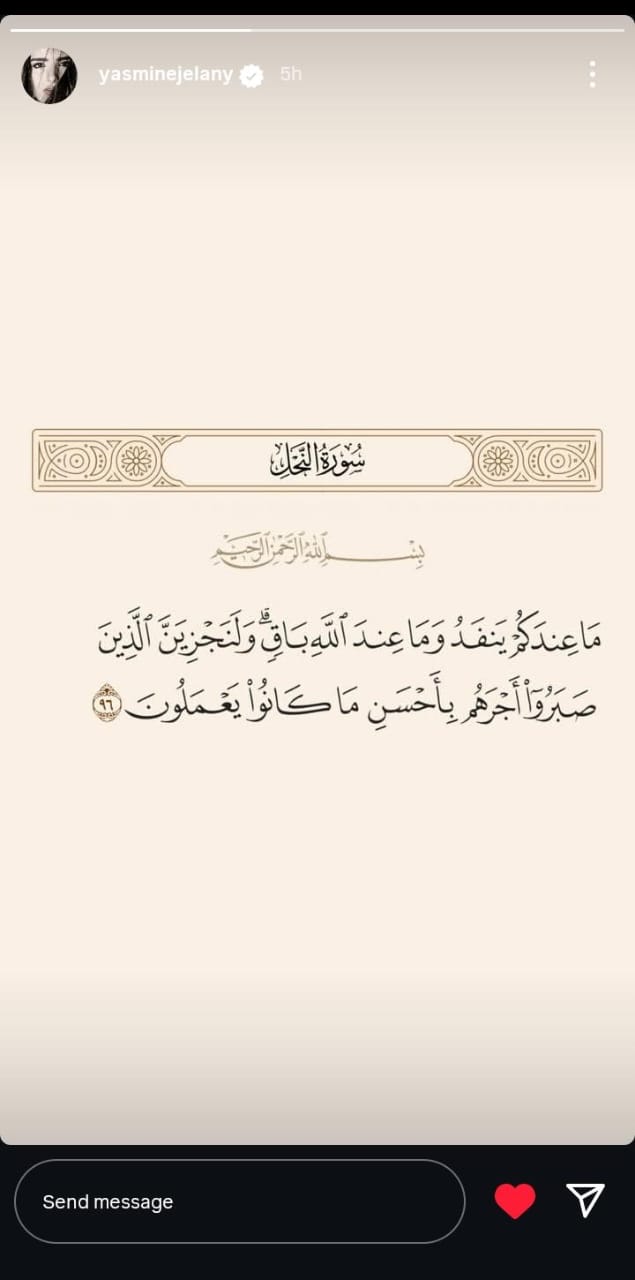 yasminejelany 5h
سُورَةُ النَّحْلِ
بِسْمِ ٱللَّهِ ٱلرَّحْمَٰنِ ٱلرَّحِيمِ
مَا عِندَكُمْ يَنفَدُ وَمَا عِندَ ٱللَّهِ بَاقٍۗ وَلَنَجْزِيَنَّ ٱلَّذِينَ
صَبَرُوٓا۟ أَجْرَهُم بِأَحْسَنِ مَا كَانُوا۟ يَعْمَلُونَ ٩٦
Send message